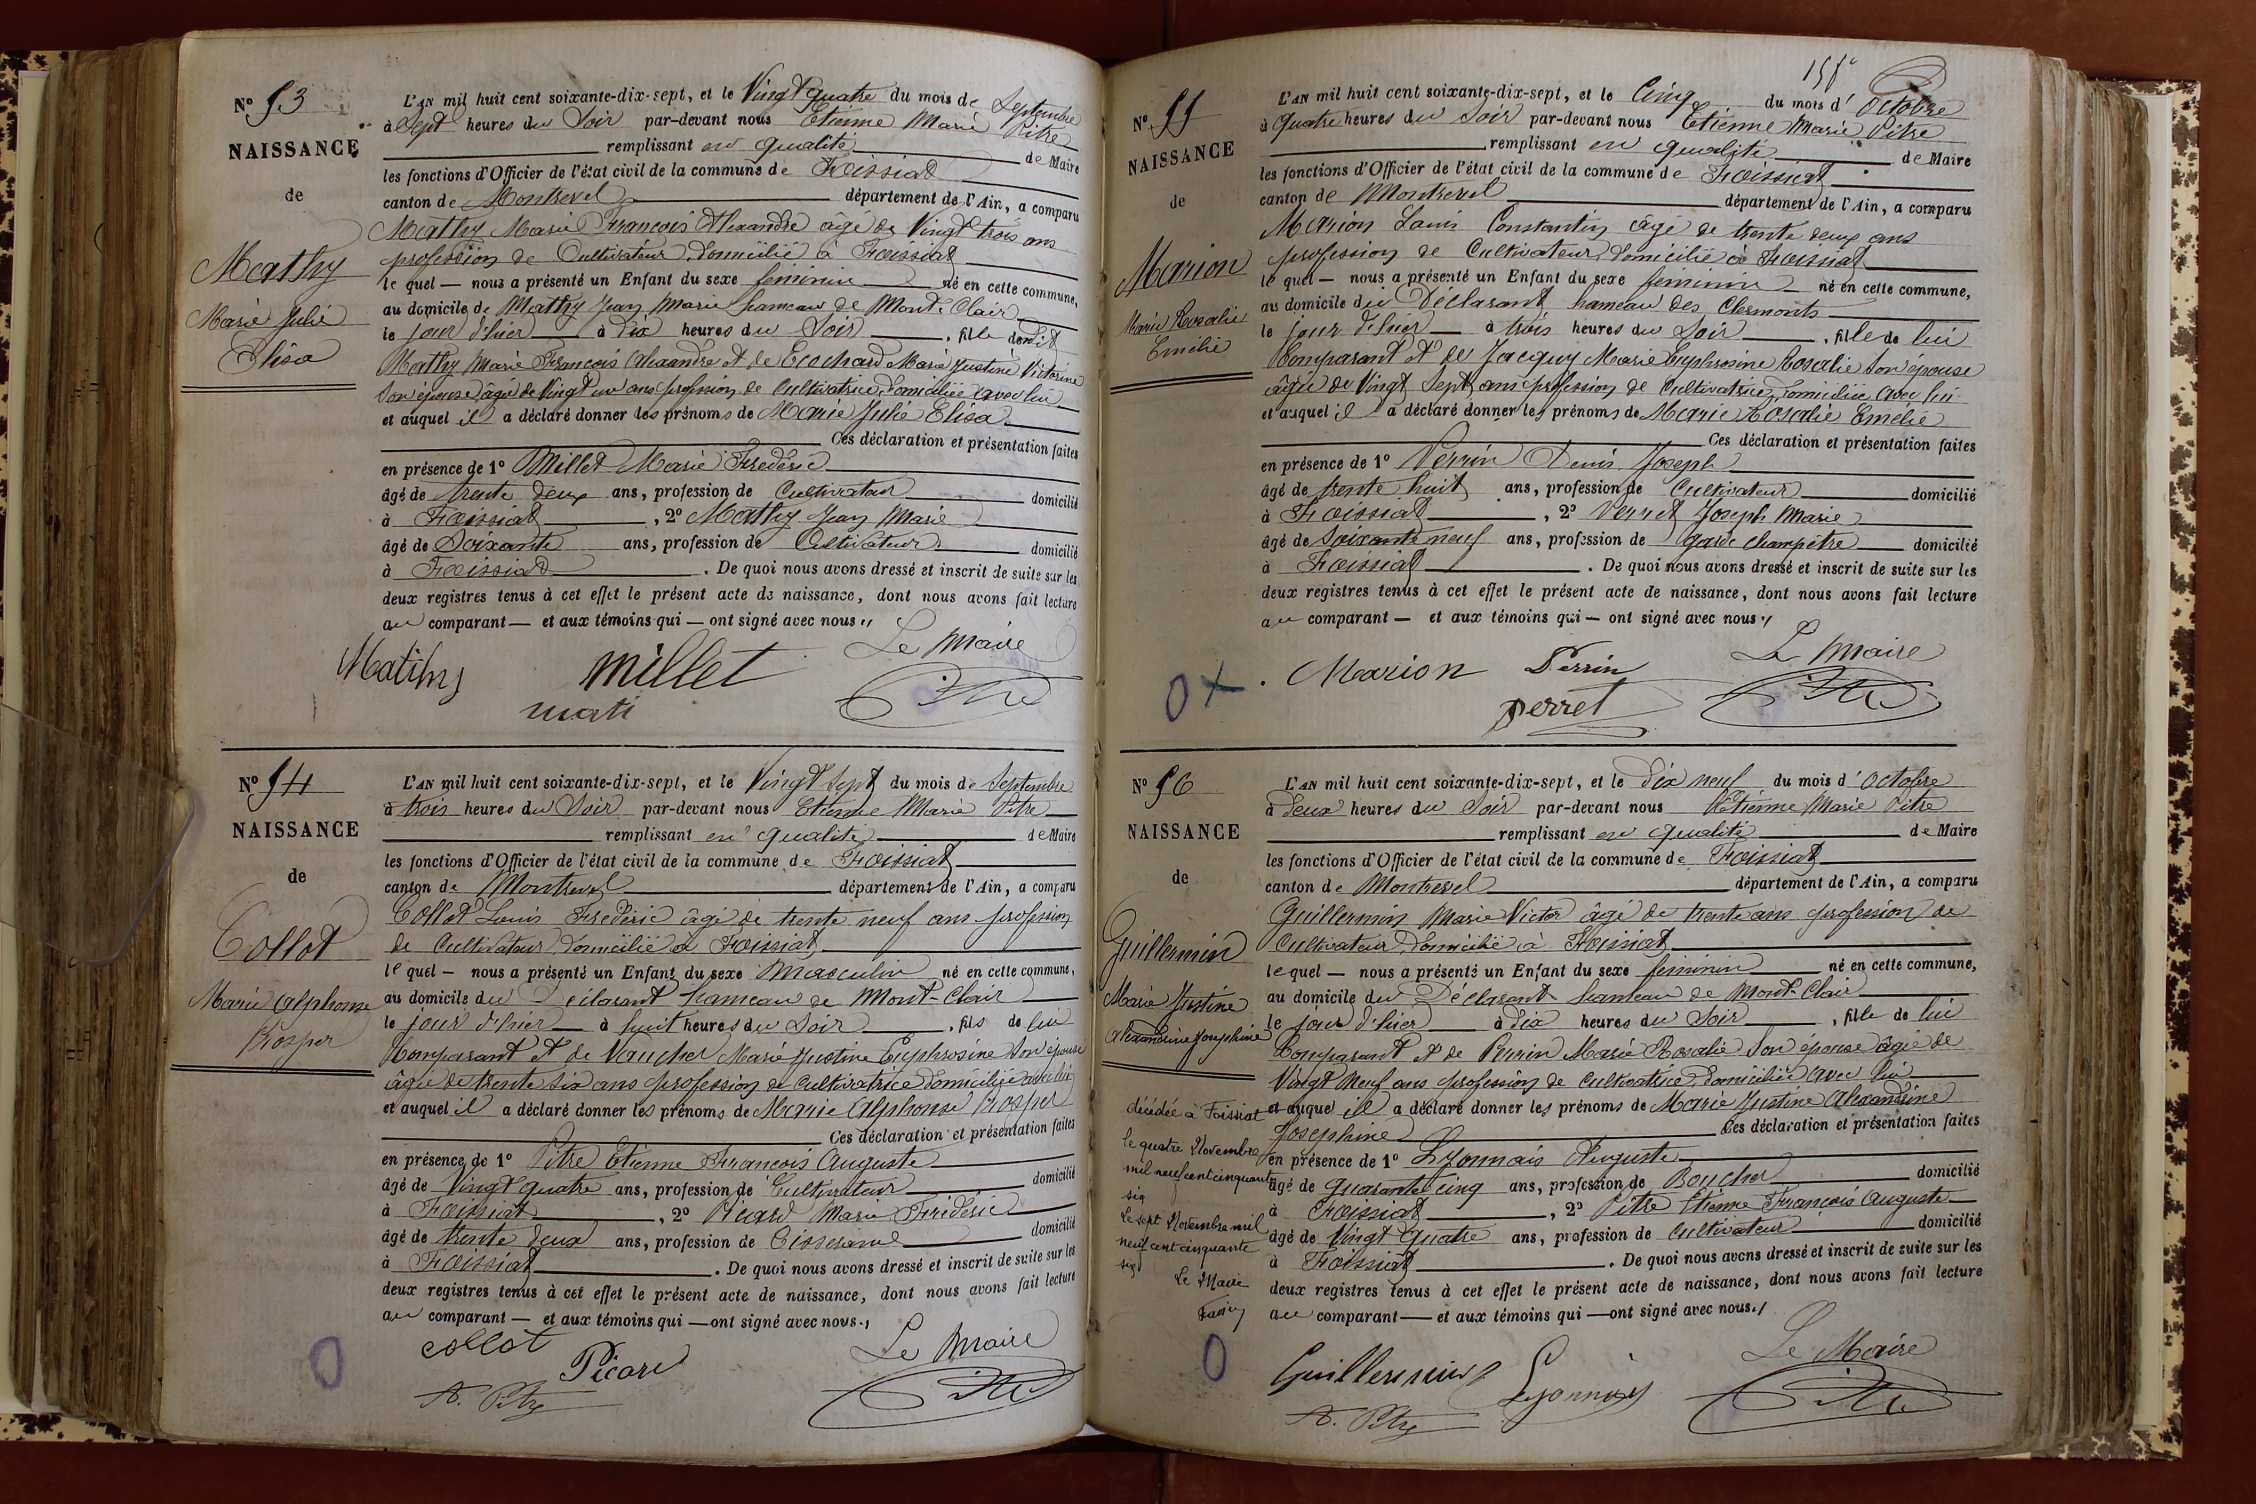 N° 53
NAISSANCE
de
Mathy
Marie Julie
Elisa
L'AN mil huit cent soixante-dix-sept, et le Vingt quatre du mois de Septembre
à Sept heures du Soir par-devant nous Etienne Marie Pitre
remplissant en qualité de Maire
les fonctions d'Officier de l'état civil de la commune de Foissiat
canton de Montrevel département de l'Ain, a comparu
Mathy Marie François Alexandre âgé de Vingt trois ans
profession de Cultivateur domicilié à Foissiat
le quel — nous a présenté un Enfant du sexe féminin né en cette commune,
au domicile de Mathy Jean Marie hameau de Mont-Clair
le jour d'hier à dix heures du Soir, fille dudit
Mathy Marie François Alexandre et de Ecochard Marie Justine Victorine
Son épouse âgée de Vingt un ans profession de Cultivatrice domiciliée avec lui
et auquel il a déclaré donner les prénoms de Marie Julie Elisa
Ces déclaration et présentation faites
en présence de 1° Millet Marie Frédéric
âgé de trente deux ans, profession de Cultivateur domicilié
à Foissiat, 2° Mathy Jean Marie
âgé de Soixante ans, profession de Cultivateur domicilié
à Foissiat. De quoi nous avons dressé et inscrit de suite sur les
deux registres tenus à cet effet le présent acte de naissance, dont nous avons fait lecture
au comparant — et aux témoins qui — ont signé avec nous.,
Mathy Millet Le Maire
mati Pitre
N° 54
NAISSANCE
de
Collot
Marie Alphonse
Prosper
L'AN mil huit cent soixante-dix-sept, et le Vingt Sept du mois de Septembre
à trois heures du Soir par-devant nous Etienne Marie Pitre
remplissant en qualité de Maire
les fonctions d'Officier de l'état civil de la commune de Foissiat
canton de Montrevel département de l'Ain, a comparu
Collot Louis Frédéric âgé de trente neuf ans profession
de Cultivateur domicilié à Foissiat
le quel — nous a présenté un Enfant du sexe Masculin né en cette commune,
au domicile du Déclarant hameau de Mont-Clair
le jour d'hier à huit heures du Soir, fils de lui
Comparant et de Vaucher Marie Justine Euphrosine Son épouse
âgée de trente six ans profession de Cultivatrice domiciliée avec lui
et auquel il a déclaré donner les prénoms de Marie Alphonse Prosper
Ces déclaration et présentation faites
en présence de 1° Pitre Etienne François Auguste
âgé de Vingt quatre ans, profession de Cultivateur domicilié
à Foissiat, 2° Picard Marie Frédéric
âgé de trente deux ans, profession de Tisserand domicilié
à Foissiat. De quoi nous avons dressé et inscrit de suite sur les
deux registres tenus à cet effet le présent acte de naissance, dont nous avons fait lecture
au comparant — et aux témoins qui — ont signé avec nous.,
collot Picard Le Maire
A. Pitre Pitre
N° 55
NAISSANCE
de
Marion
Marie Rosalie
Emélie
L'AN mil huit cent soixante-dix-sept, et le Cinq du mois d'Octobre
à quatre heures du Soir par-devant nous Etienne Marie Pitre
remplissant en qualité de Maire
les fonctions d'Officier de l'état civil de la commune de Foissiat
canton de Montrevel département de l'Ain, a comparu
Marion Louis Constantin âgé de trente deux ans
profession de Cultivateur domicilié à Foissiat
le quel — nous a présenté un Enfant du sexe féminin né en cette commune,
au domicile du Déclarant hameau des Clermonts
le jour d'hier à trois heures du Soir, fille de lui
Comparant et de Jacquy Marie Euphrosine Rosalie Son épouse
âgée de Vingt Sept ans profession de Cultivatrice domiciliée avec lui
et auquel il a déclaré donner les prénoms de Marie Rosalie Emélie
Ces déclaration et présentation faites
en présence de 1° Perrin Denis Joseph
âgé de trente huit ans, profession de Cultivateur domicilié
à Foissiat, 2° Perret Joseph Marie
âgé de Soixante neuf ans, profession de garde champêtre domicilié
à Foissiat. De quoi nous avons dressé et inscrit de suite sur les
deux registres tenus à cet effet le présent acte de naissance, dont nous avons fait lecture
au comparant — et aux témoins qui — ont signé avec nous.,
Marion Perrin Le Maire
perret Pitre
N° 56
NAISSANCE
de
Guillermin
Marie Justine
Alexandrine Josephine
décédée à Foissiat
le quatre Novembre
mil neuf cent cinquante
six
Le sept Novembre mil
neuf cent cinquante
six
Le Maire
L'AN mil huit cent soixante-dix-sept, et le Dix neuf du mois d'Octobre
à Deux heures du Soir par-devant nous Etienne Marie Pitre
remplissant en qualité de Maire
les fonctions d'Officier de l'état civil de la commune de Foissiat
canton de Montrevel département de l'Ain, a comparu
Guillermin Marie Victor âgé de trente ans profession de
Cultivateur domicilié à Foissiat
le quel — nous a présenté un Enfant du sexe féminin né en cette commune,
au domicile du Déclarant hameau de Mont-Clair
le jour d'hier à dix heures du Soir, fille de lui
Comparant et de Perrin Marie Rosalie Son épouse âgée de
Vingt Neuf ans profession de Cultivatrice domiciliée avec lui
et auquel il a déclaré donner les prénoms de Marie Justine Alexandrine
Josephine Ces déclaration et présentation faites
en présence de 1° Lyonnais Auguste
âgé de quarante cinq ans, profession de Boucher domicilié
à Foissiat, 2° Pitre Etienne François Auguste
âgé de Vingt Quatre ans, profession de Cultivateur domicilié
à Foissiat. De quoi nous avons dressé et inscrit de suite sur les
deux registres tenus à cet effet le présent acte de naissance, dont nous avons fait lecture
au comparant — et aux témoins qui — ont signé avec nous.,
Guillermin Lyonnais Le Maire
A. Pitre Pitre